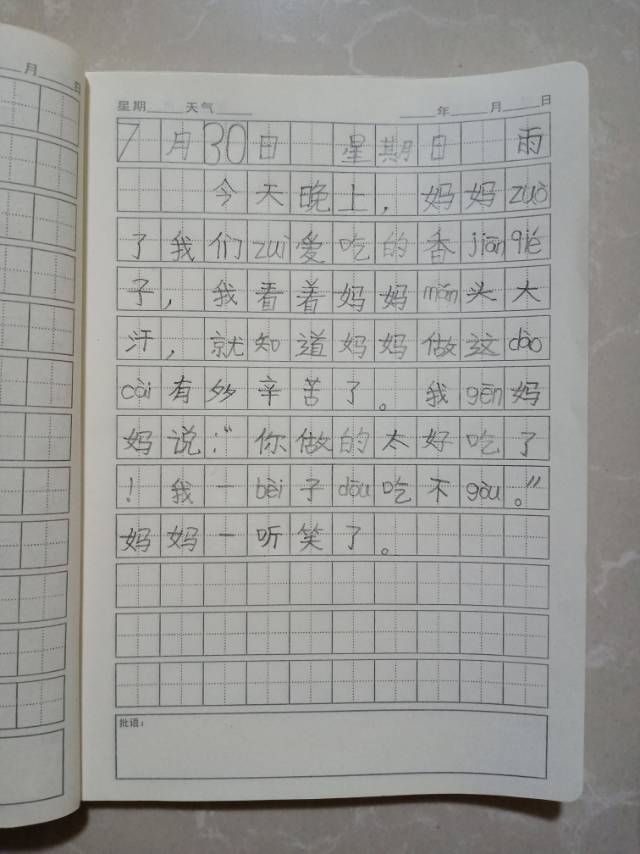 月 日
星期 天气 年 月 日
7月30日 星期日 雨
今天晚上，妈妈zuò
了我们zuì爱吃的香jiān qié
子，我看着妈妈mǎn头大
汗，就知道妈妈做这dào
cài有多辛苦了。我gēn妈
妈说：“你做的太好吃了
！我一bèi子dōu吃不gòu。”
妈妈一听笑了。
批语：